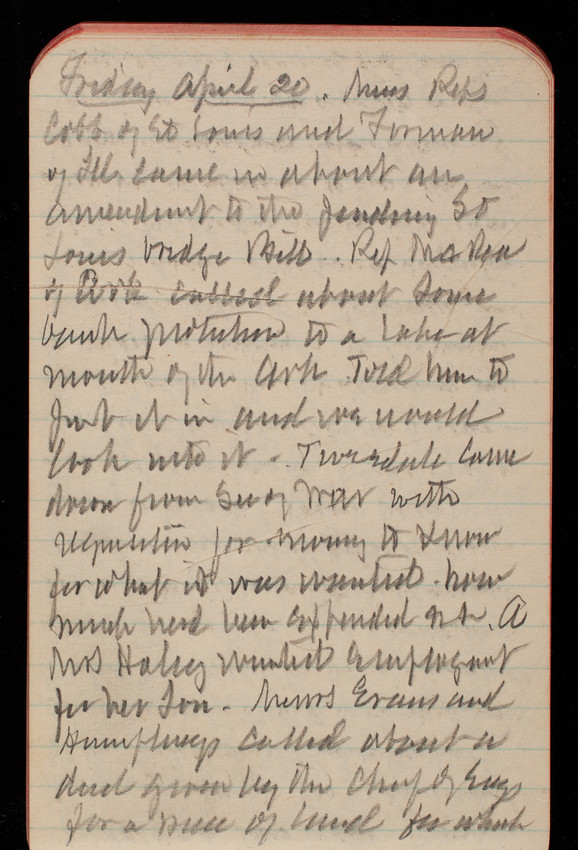 Friday April 20. Messrs Reps
Cobb of St Louis and Forman
of Ills came in about an
amendment to the pending St
Louis bridge Bill. Rep McRea
of Ark called about some
bank protection to a lake at
mouth of the Ark Told him to
put it in and we would
look into it. Tweedale came
down from Secy War with
requisition for money to know
for what it was wanted. how
much had been expended etc. A
Mrs Halsey wanted Employment
for her Son. Messrs Evans and
Humphreys called about a
deed given by the Chf of Engs
for a piece of land for which